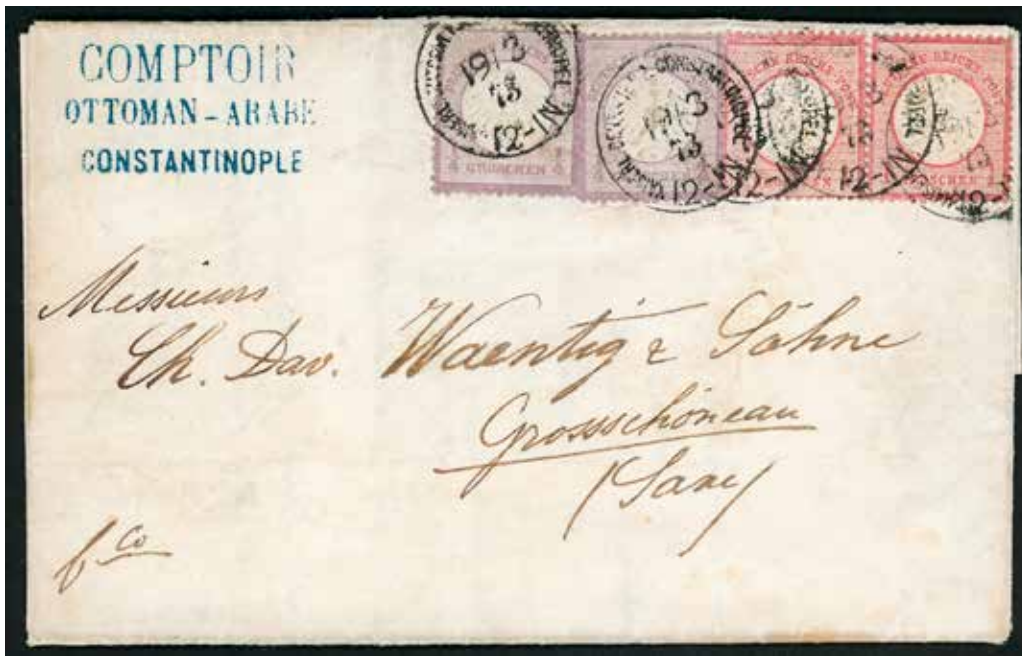 COMPTOIR
OTTOMAN-ARABE
CONSTANTINOPLE
19/3
73
12-1N
19/3
73
12-1N
12-1N
12-1N
GROSCHEN
Messieurs
Ch. Dav. Waentig & Söhne
Grossschöneau
(Saxe)
fco